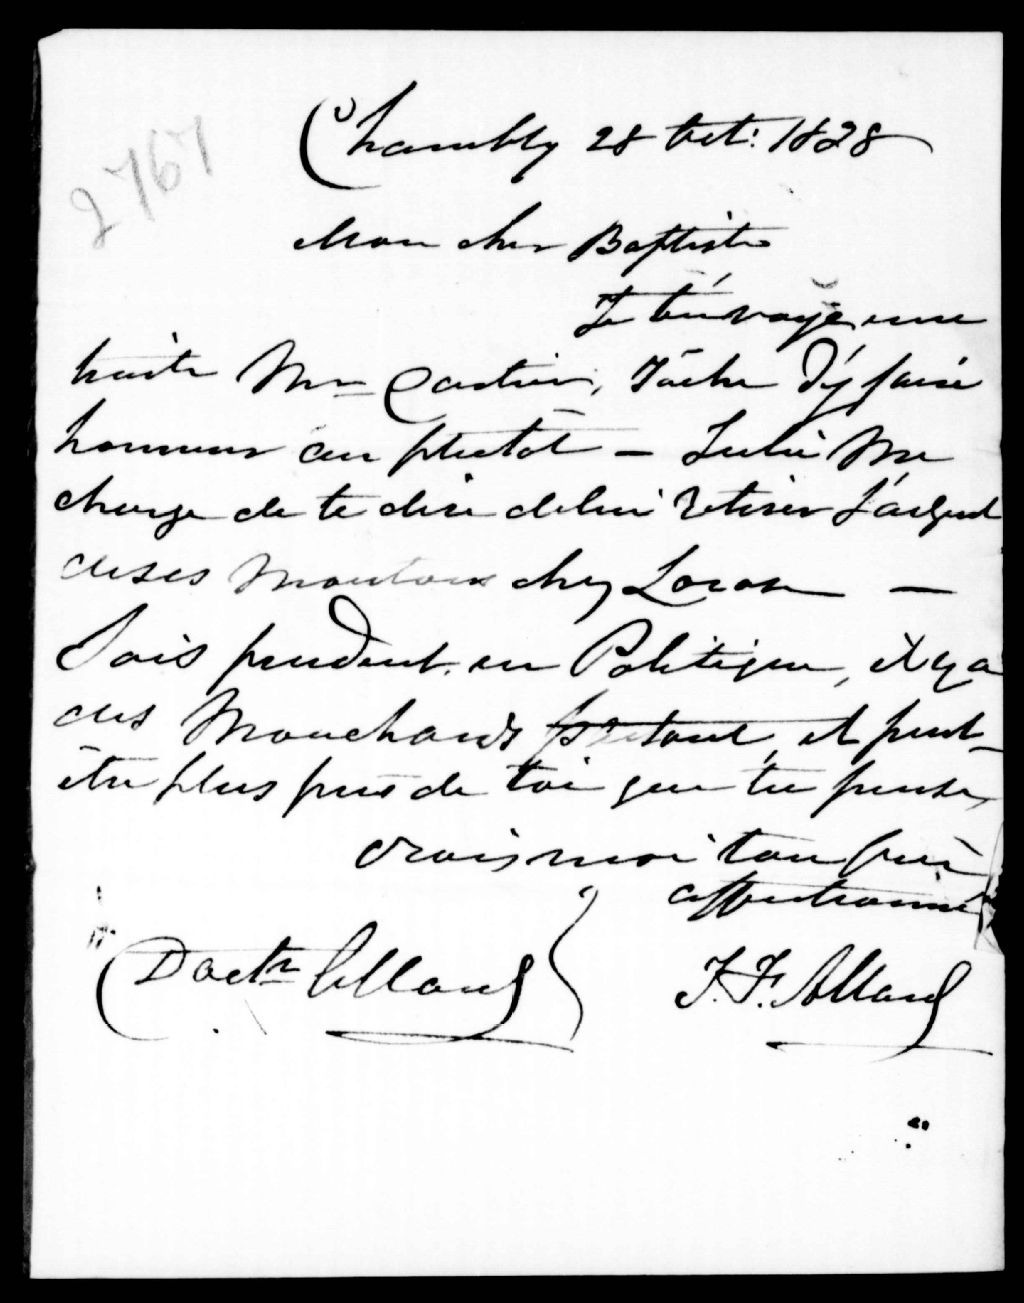 2767
Chambly 28 Oct: 1828
Mon cher Baptiste
Je t'énvoÿe une
traite Mr Cartier, Tâche d'ÿ faire
honneur au plutôt — Julie Me
charge de te dire de lui retirer L'argent
de ses Moutons chez —
Sois prudent en Politique, il y a
des Mouchards partout, et peut-
être plus près de toi que tu pense,
crois moi ton frère
affectionné
Doctr Allard
J. F. Allard